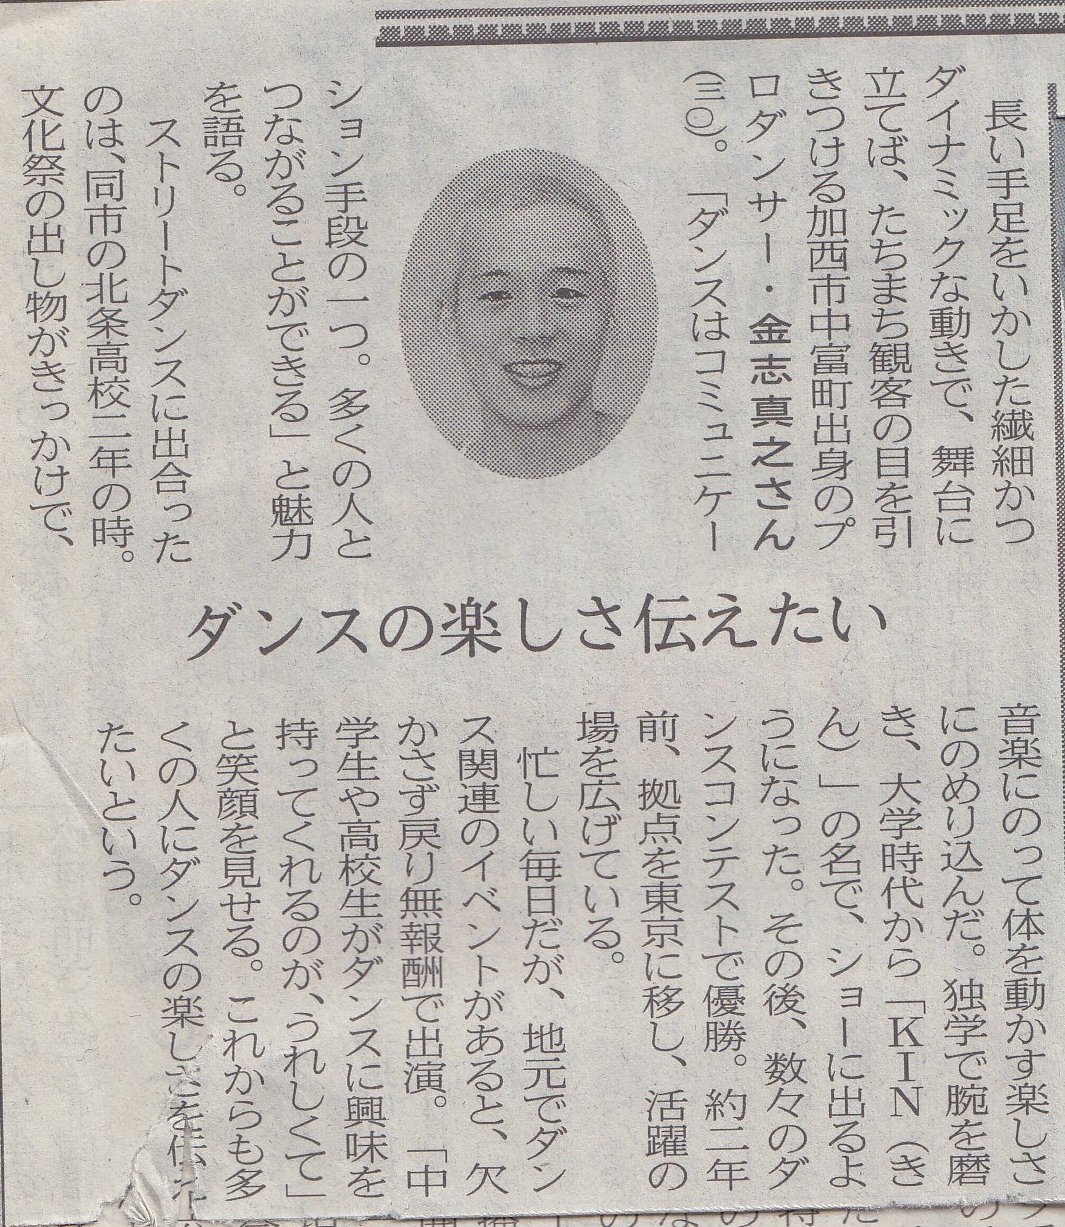 長い手足をいかした繊細かつ
ダイナミックな動きで、舞台に
立てば、たちまち観客の目を引
きつける加西市中富町出身のプ
ロダンサー・金志真之さん
(三〇)。「ダンスはコミュニケー
ション手段の一つ。多くの人と
つながることができる」と魅力
を語る。
ストリートダンスに出合った
のは、同市の北条高校二年の時。
文化祭の出し物がきっかけで、
ダンスの楽しさ伝えたい
音楽にのって体を動かす楽しさ
にのめり込んだ。独学で腕を磨
き、大学時代から「KIN(き
ん)」の名で、ショーに出るよ
うになった。その後、数々のダ
ンスコンテストで優勝。約二年
前、拠点を東京に移し、活躍の
場を広げている。
忙しい毎日だが、地元でダン
ス関連のイベントがあると、欠
かさず戻り無報酬で出演。「中
学生や高校生がダンスに興味を
持ってくれるのが、うれしくて」
と笑顔を見せる。これからも多
くの人にダンスの楽しさを伝え
たいという。